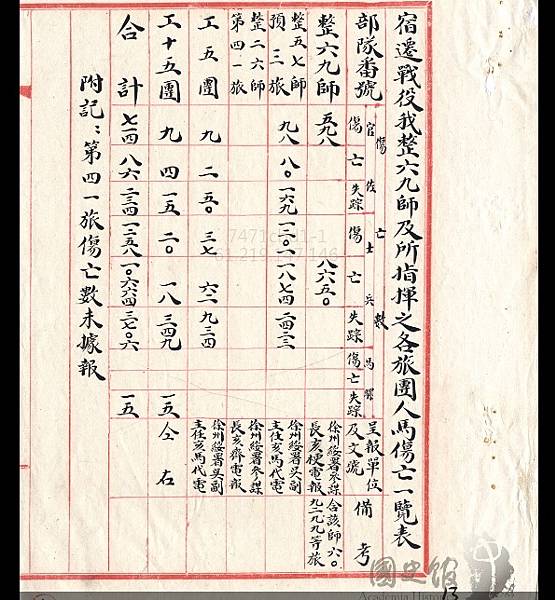 宿遷戰役我整六九師及所指揮之各旅團人馬傷亡一覽表
部隊番號 傷亡數 呈報單位及文號 備考
官佐 士兵 馬騾
傷 亡 失踪 傷 亡 失踪 傷 亡 失踪
整六九師 五九八 八六五〇 徐州綏署參謀長亥梗電報 合該師六〇九二九九等旅
整五七師預三旅 九八 八〇 一六九 一二〇一 一八七四 二四二三 徐州綏署吳副主任亥馬代電
整二六師第四一旅 徐州綏署參謀長亥齊電報
工五團 九 二 五〇 三七 六二 九三四 徐州綏署吳副主任亥馬代電
工十五團 九 四 一五 二〇 一八 三四九 一五 仝右
合計 七一四 八六 二三四 一二五八 一〇六〇四 三七〇六 一五
附記：第四一旅傷亡數未據報
國史館
Academia Historica
13